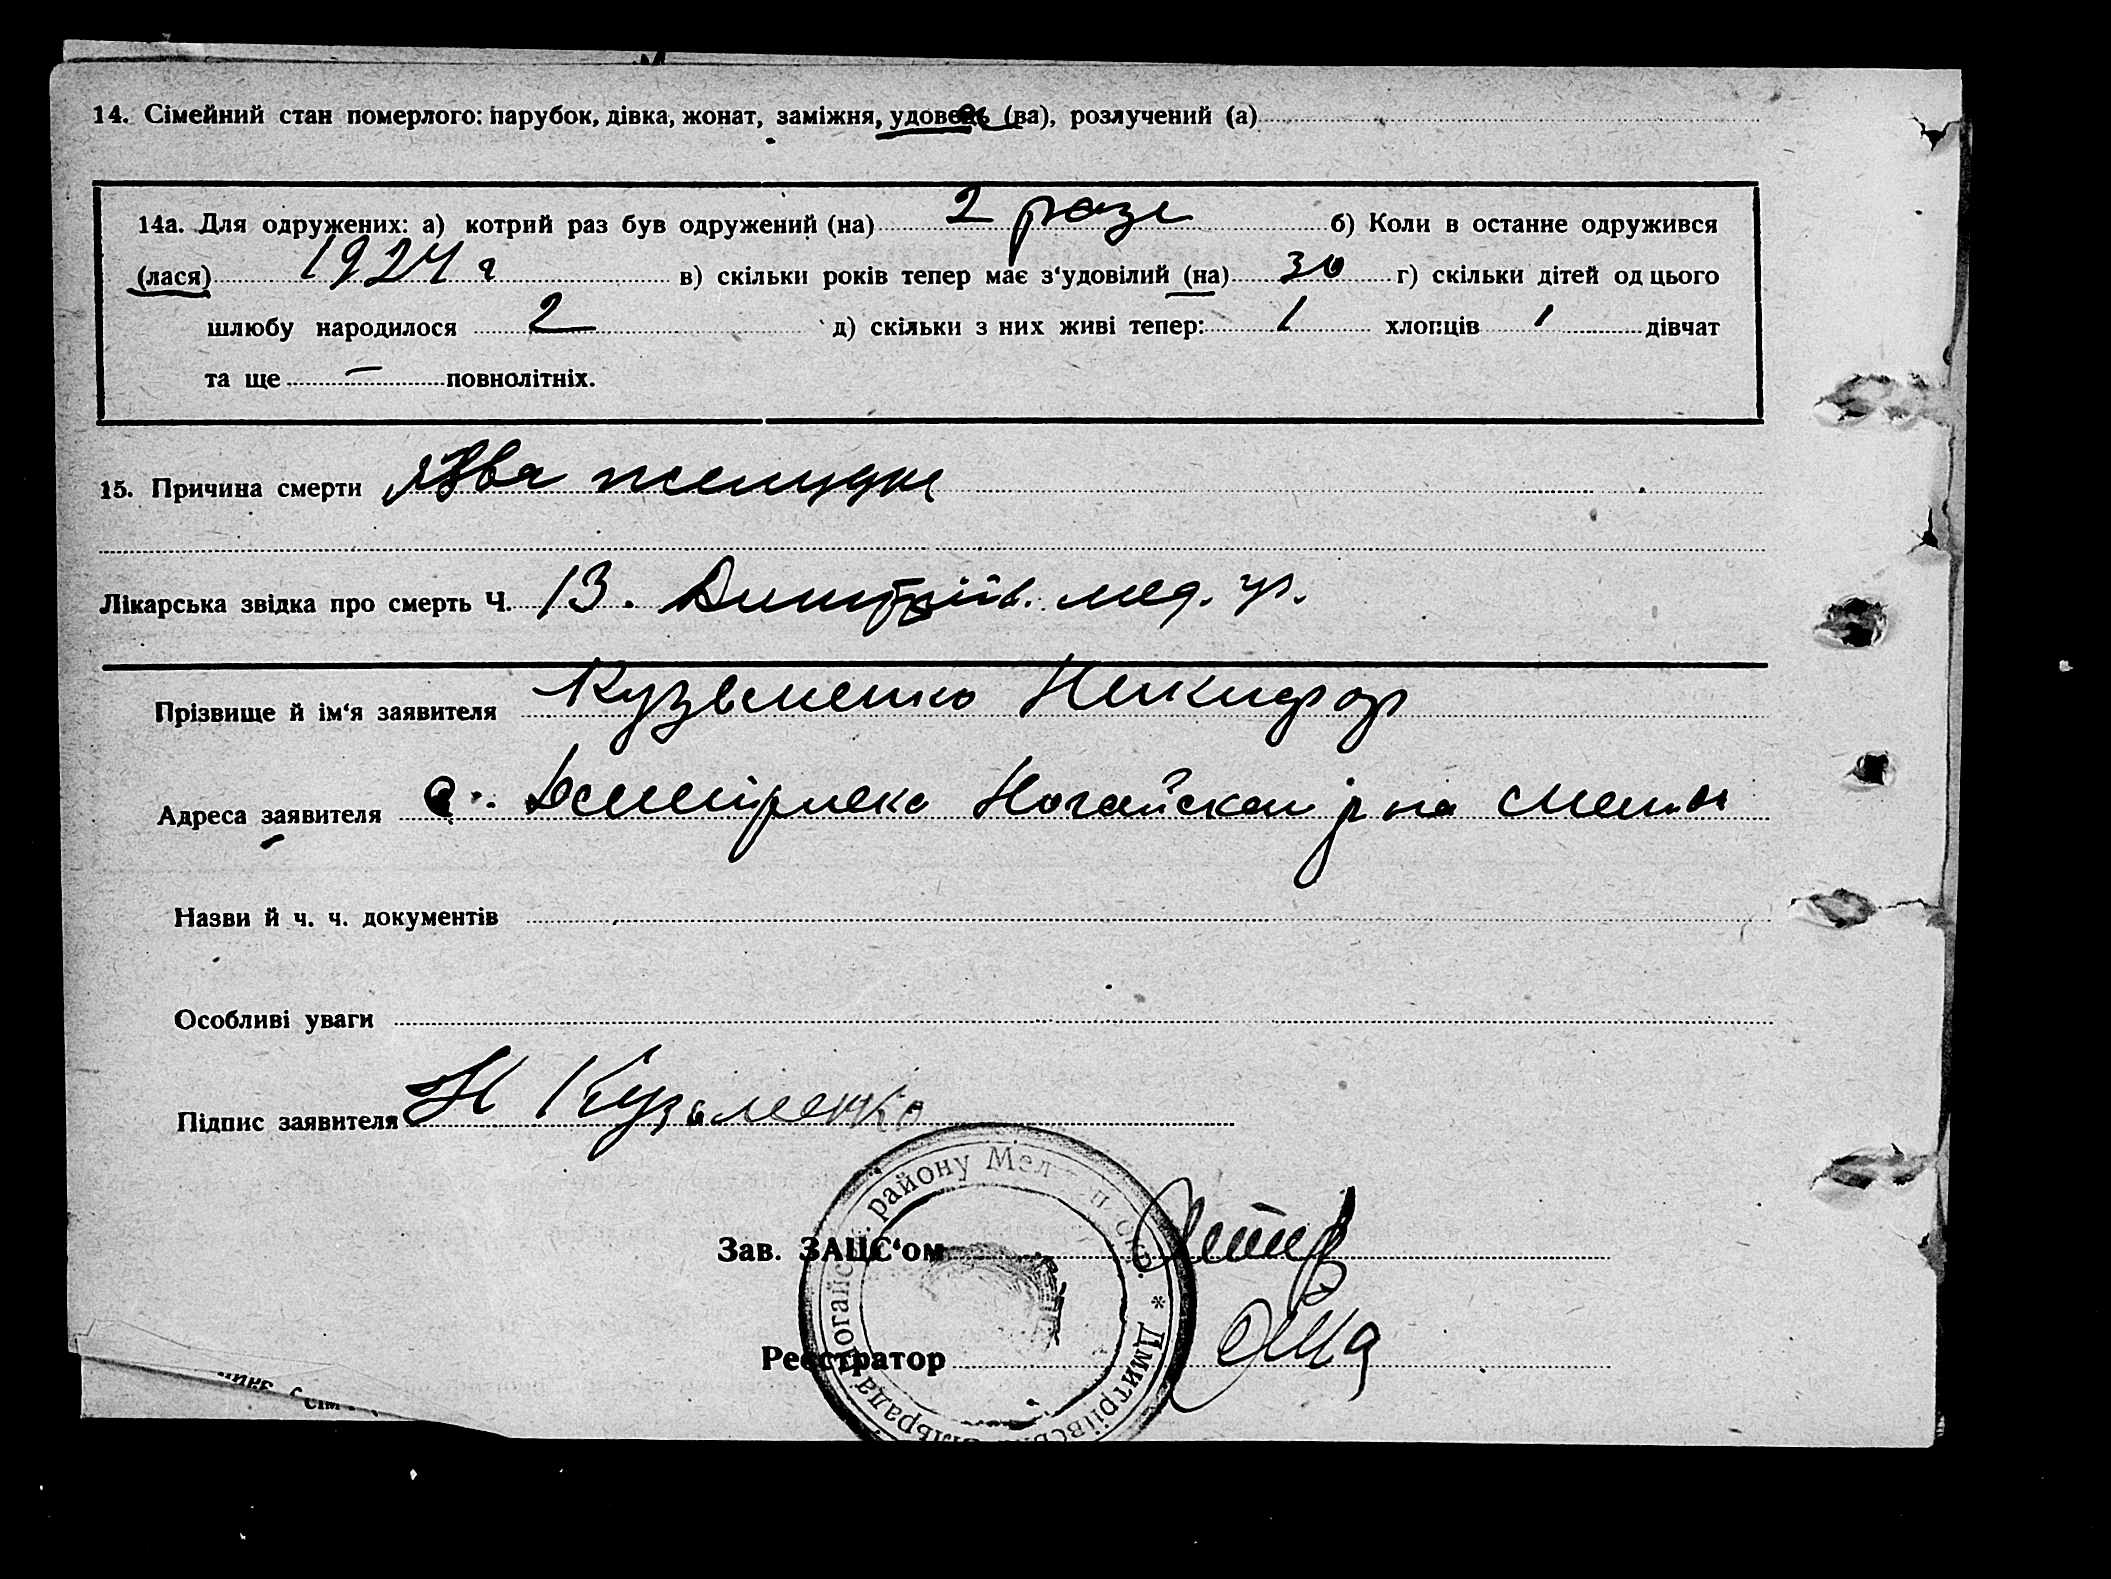 14. Сімейний стан померлого: парубок, дівка, жонат, заміжня, удовець (ва), розлучений (а)
14а. Для одружених: а) котрий раз був одружений (на) 2 рази б) Коли в останнє одружився
(лася) 1924 г в) скільки років тепер має з‘удовілий (на) 30 г) скільки дітей од цього
шлюбу народилося 2 д) скільки з них живі тепер: 1 хлопців 1 дівчат
та ще — повнолітніх.
15. Причина смерти Язва желудка
Лікарська звідка про смерть Ч. 13. Дмитріїв. мед.
Прізвище й ім‘я заявителя Кузьменко Никифор
Адреса заявителя с. Ногайскаи р на
Назви й ч. ч. документів
Особливі уваги
Підпис заявителя Н Кузьменко
Зав. ЗАЦС‘ом
Реєстратор
району Мел п. окр. * Дмитріївсь